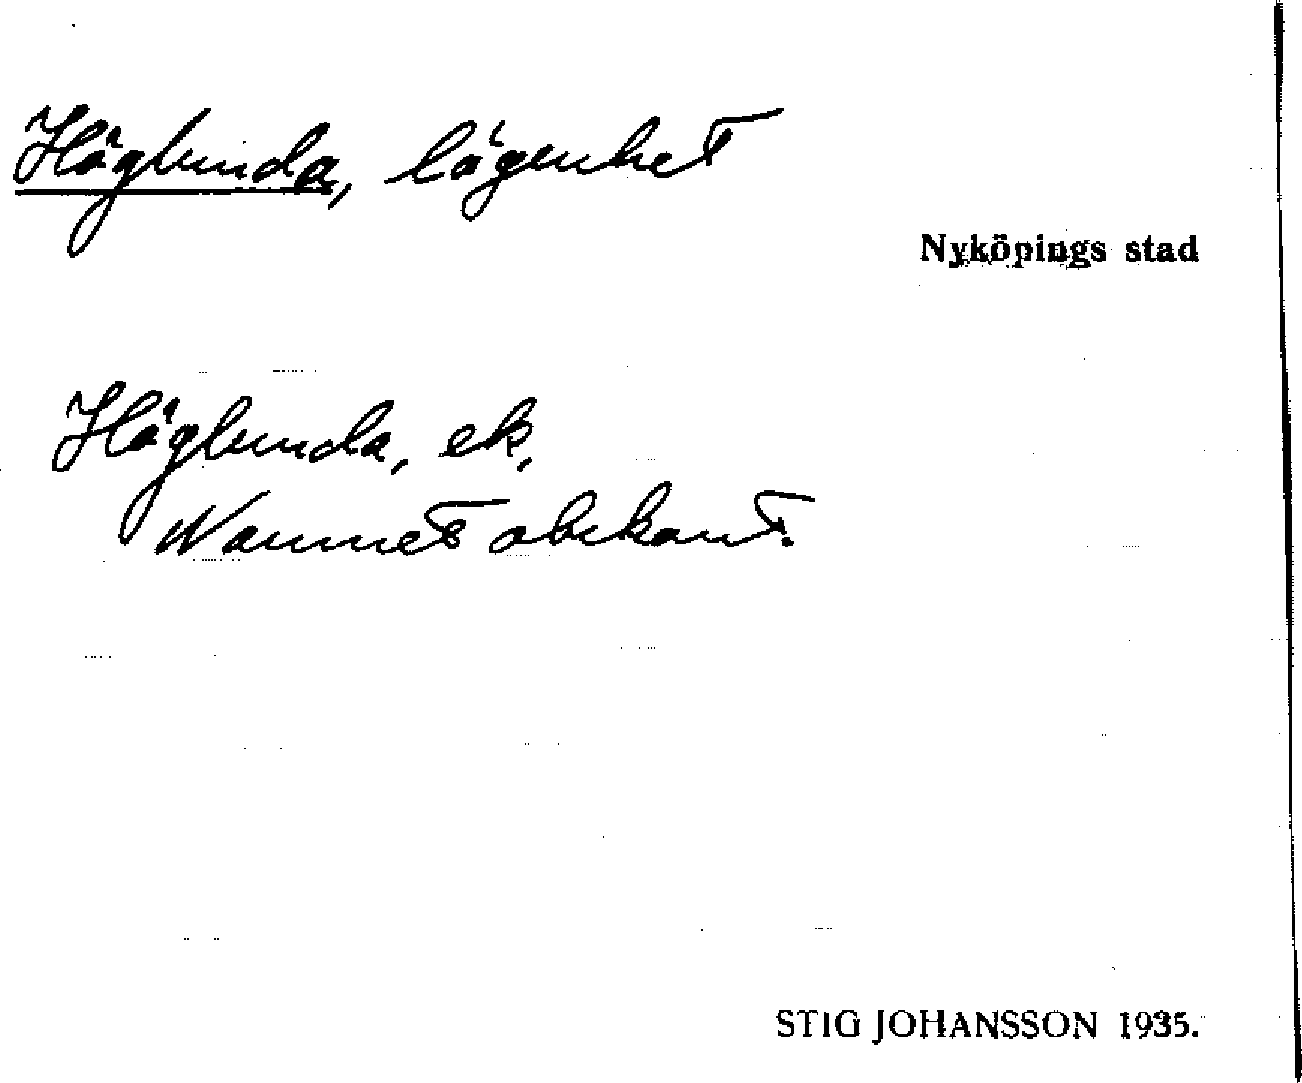 Höglunda, lägenhet
Nyköpings stad
Höglunda, ek.
Namnet obekant.
STIG JOHANSSON 1935.